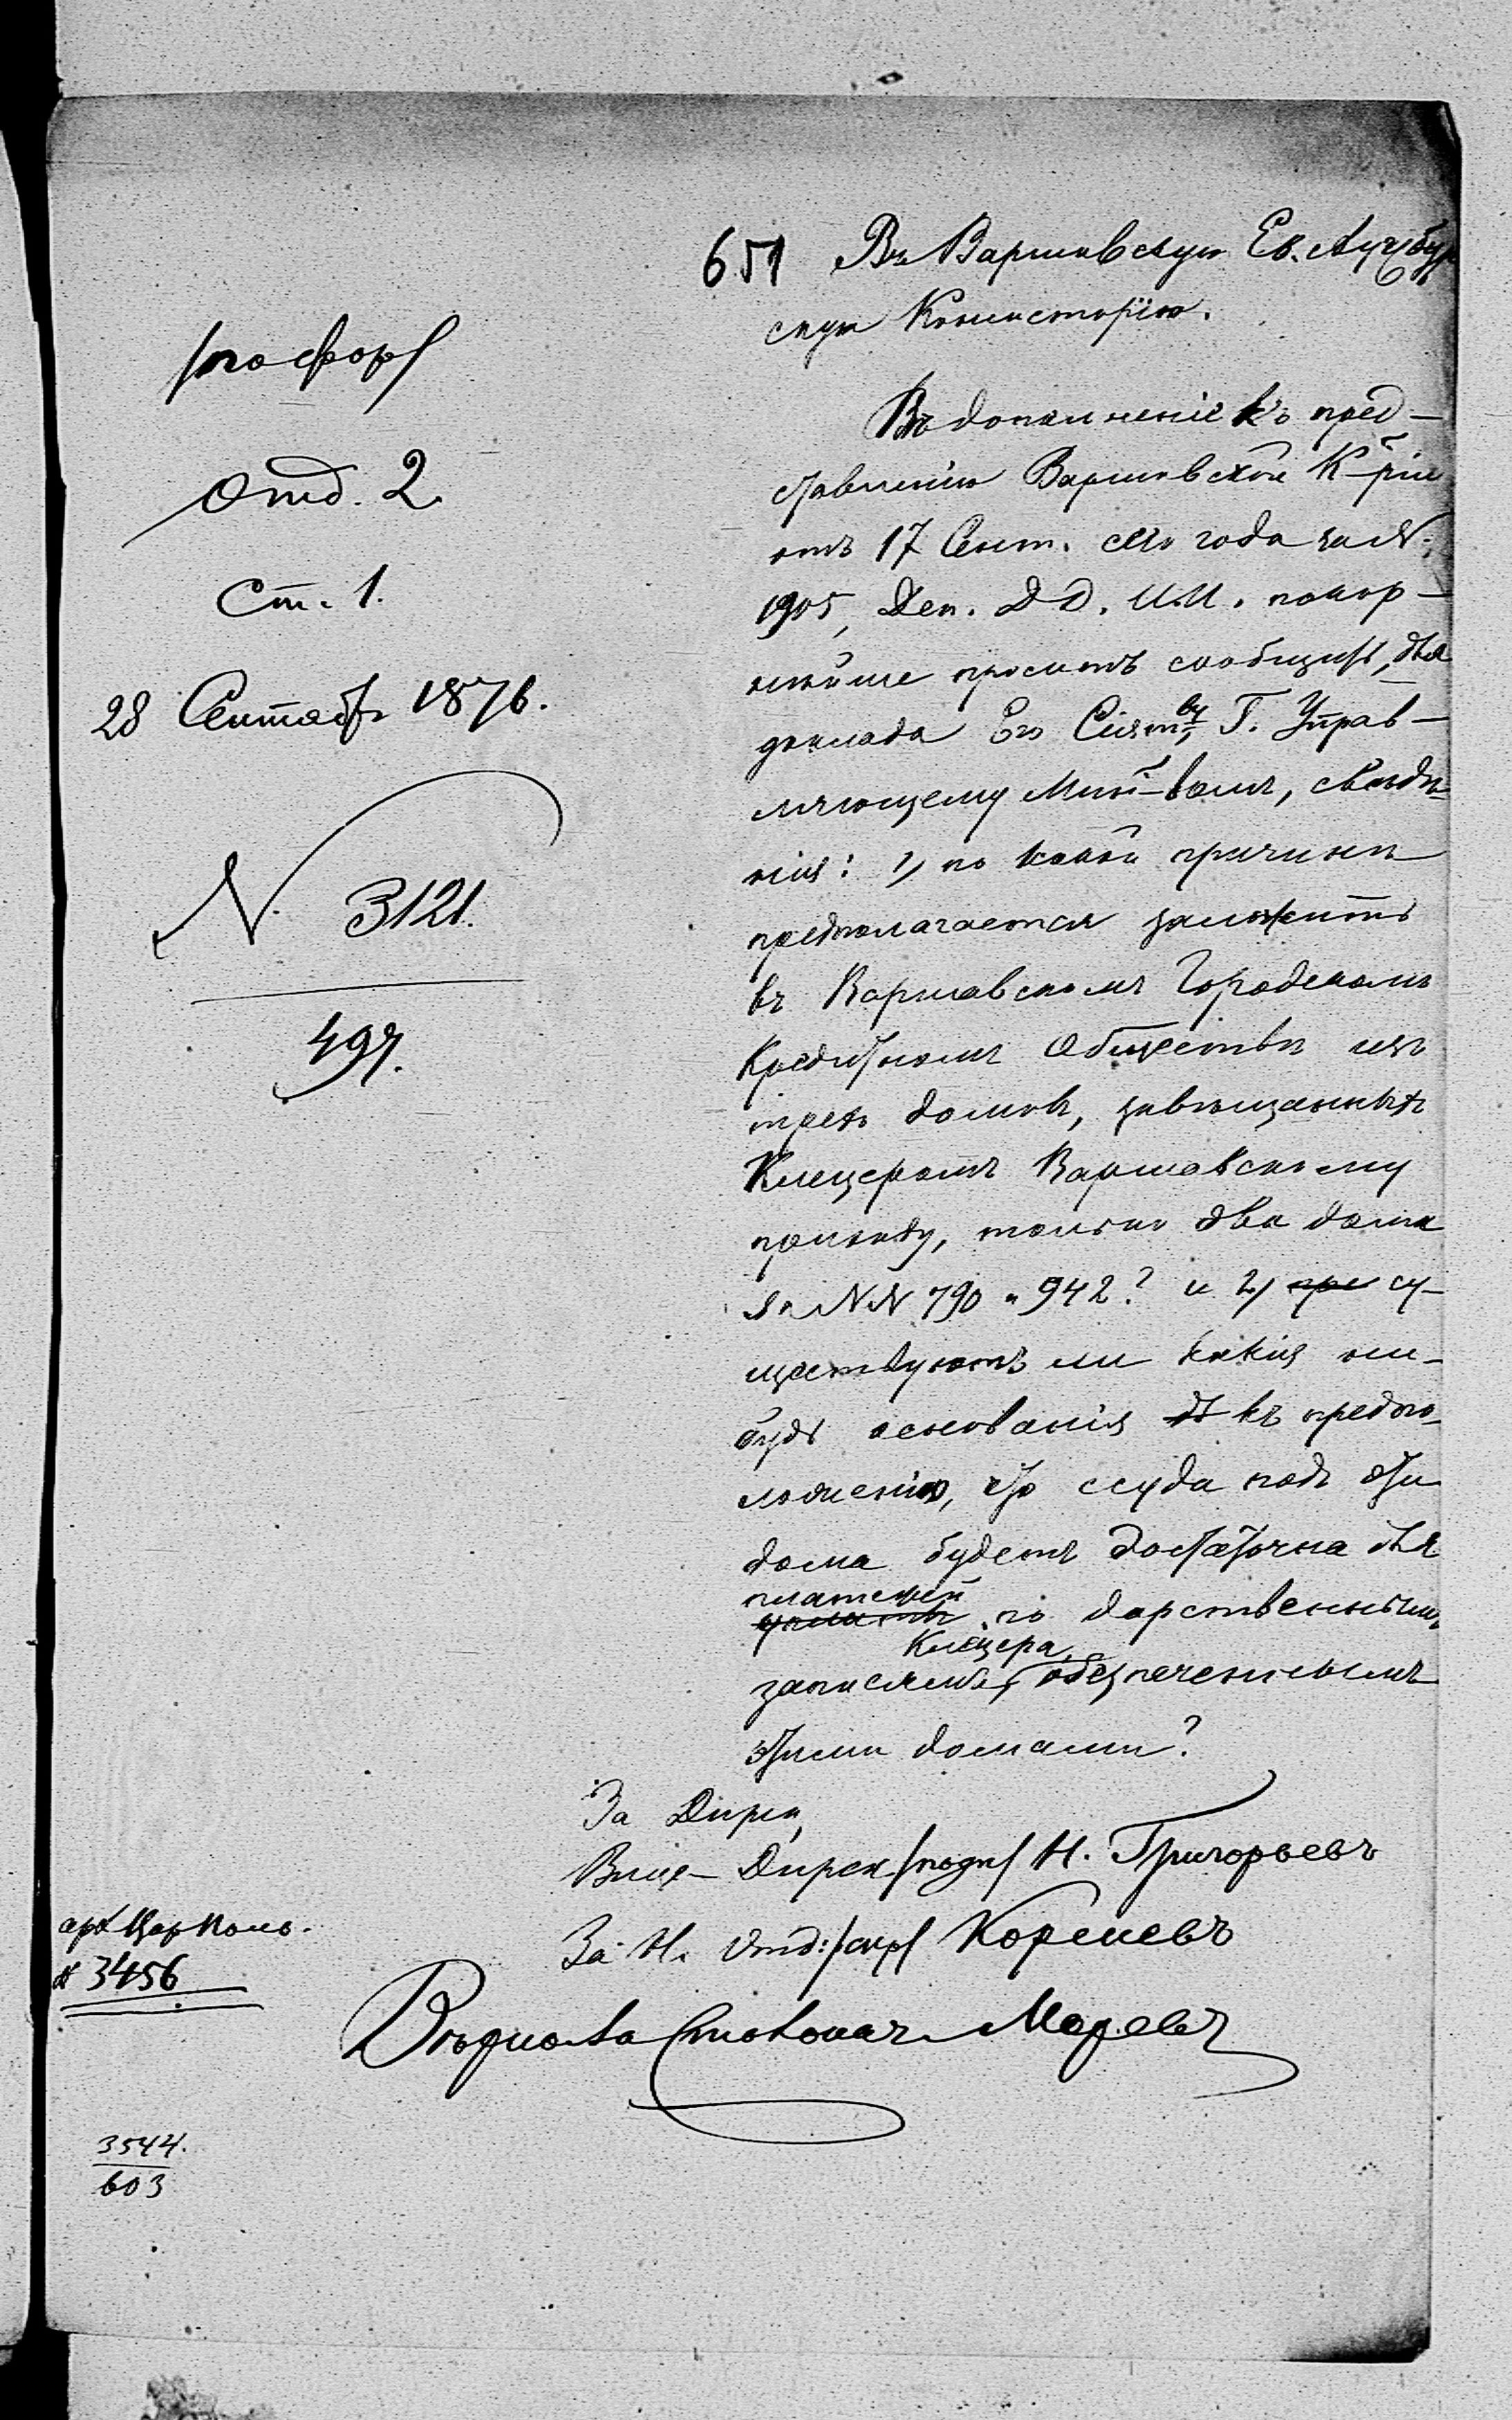 /по форм/
Отд. 2
Ст. 1.
28 Сентяб. 1876.
N. 3121.
497.
651 Въ Варшавскую Ев. Аугсбур
скую Консисторію.
Въ дополненіе къ пред-
ставленію Варшавской К-ріи
отъ 17 Сент. сего года за N.
1905, Деп. Д. Д. И. И. покор-
нѣйше проситъ сообщить, для
доклада Его Сіят-ву, Г. Управ-
ляющему Мин-вомъ, свѣдѣ-
нія: 1) по какой причинѣ
предполагается заложить
въ Варшавскомъ Городскомъ
Кредитномъ Обществѣ изъ
трехъ домовъ, завѣщанныхъ
Клецеромъ Варшавскому
приходу, только два дома
за NN 790 и 942? и 2) су-
ществуютъ ли какія ни-
будь основанія къ предпо-
ложенію, что ссуда подъ эти
дома будетъ достаточна для
платежей по дарственнымъ
записямъ Клецера, обезпеченнымъ
этими домами?
За Дирек,
Вице-Дирек. /подп/ Н. Григорьевъ
За Н. Отд: /скр/ Кореневъ
Вѣрно: За Столонач.
арх Цар Поль.
№ 3456
3544.
603